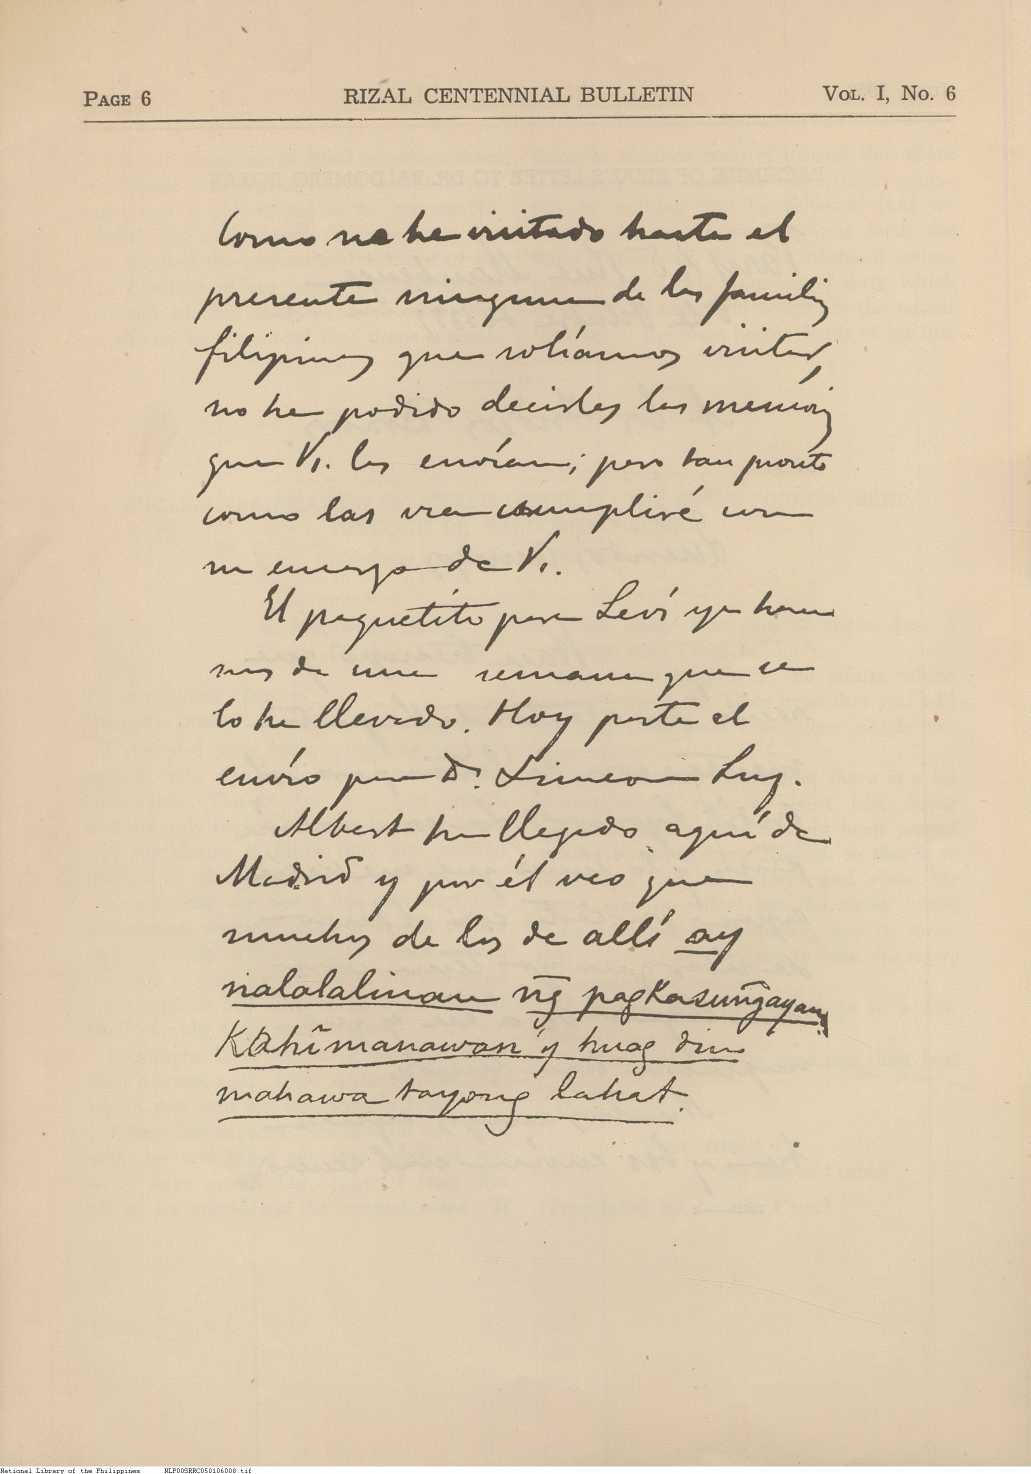 PAGE 6 RIZAL CENTENNIAL BULLETIN VOL. I, No. 6
Como no he visitado hasta el
presente ninguna de las familias
filipinas que solíamos visitar,
no he podido decirles las memorias
que Vs. les envían; pero tan pronto
como las vea cumpliré con
su encargo de Vs.
El paquetito para Leví ya hace
mas de una semana que se
lo he llevado. Hoy parte el
envío para Dn. Simeon
Albert ha llegado aquí de
Madrid y por él veo que
muchos de los de allí ay
nalalalinan ng̃ pagkasung̃ayan.
Kahimanawari y huag din
mahawa tayong lahat.
National Library of the Philippines NLP00SRRC050106008.tif